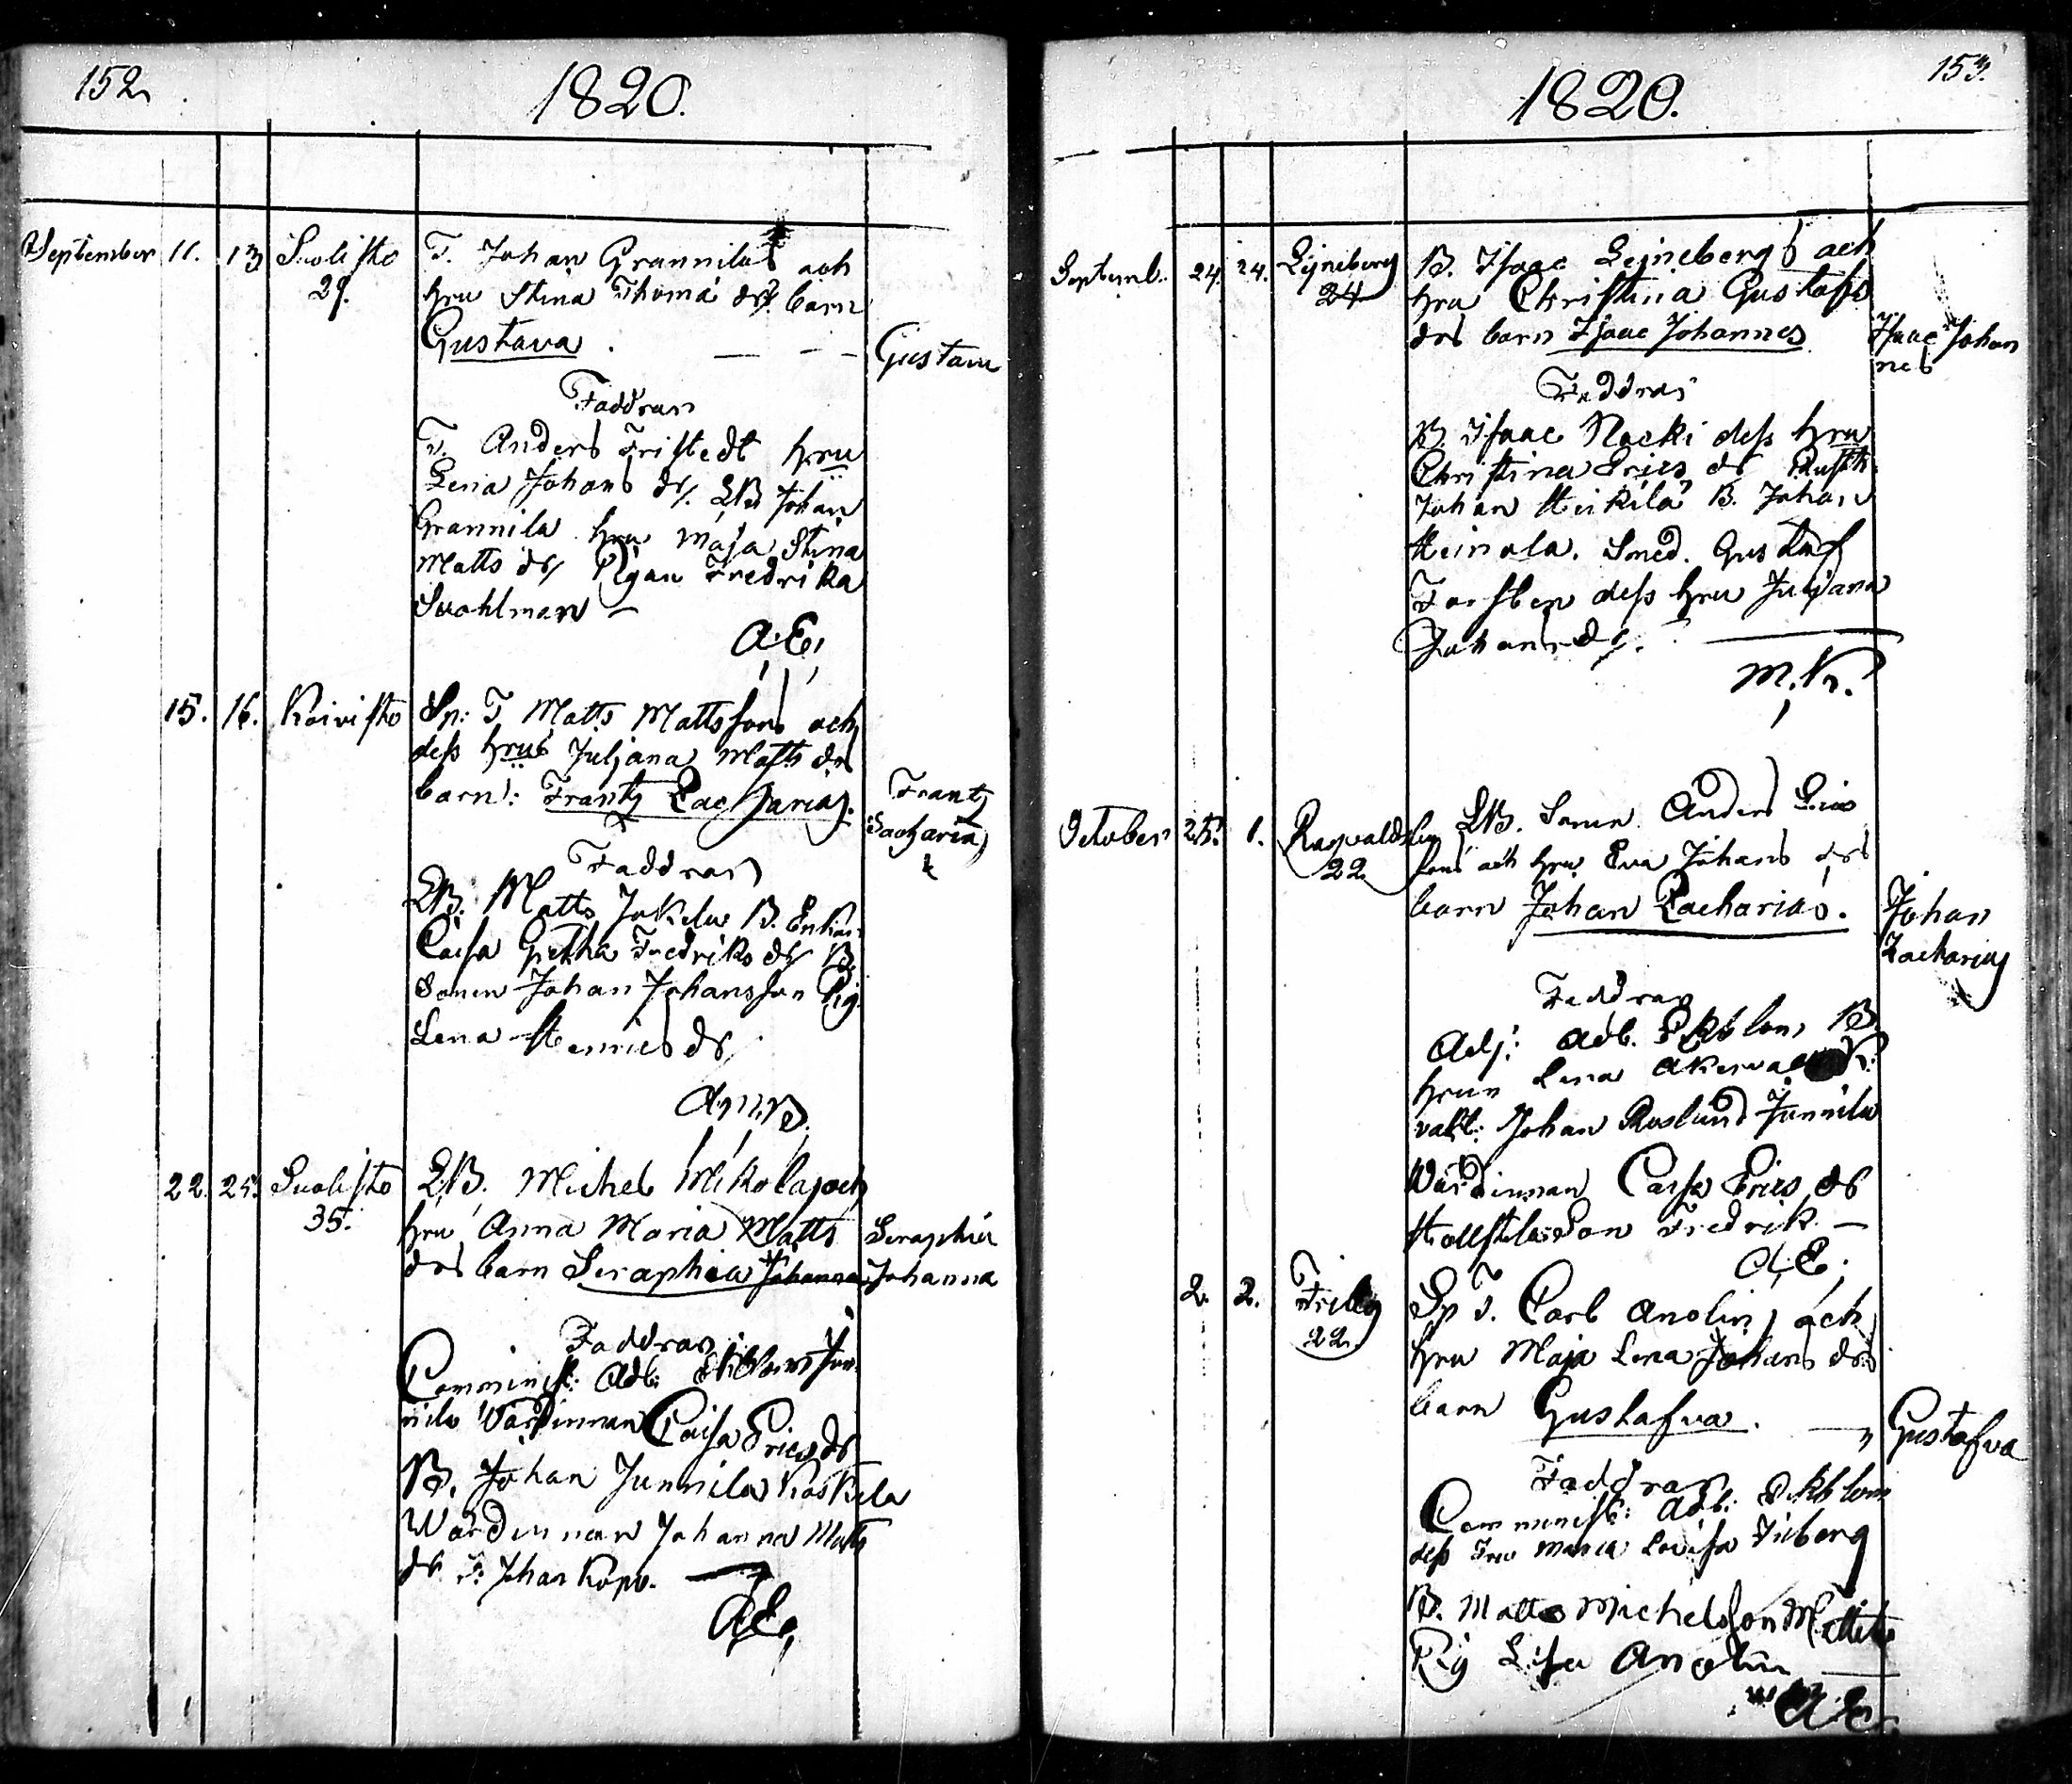 152
1820.
September 11. 13 Suolisto T. Johan Grannilas och
29. hru Stina Thomæ dr barn
Gustava. Gustava
Faddrar
T. Anders Fristedt hru
Lena Johans dr. LB Johan
Grannila hru Maja Stina
Matts dr Pigan Fredrika
Swahlman
A.E.
15. 16. Koivisto Sp: T Matts Mattssons och
dess hrus Juljana Matts drs
barn: Frantz Zacharias. Frantz
Zacharias
Faddrar
LB. Matts Jakela B.
Caisa Gretha Fredriks dr B.
Sonen Johan Johansson Pig.
Lena Henrics dr
22. 25. Suolisto LB. Michel Mikola och
35. hru Anna Maria Matts Seraphia
drs barn Seraphia Johanna Johanna
Faddrar
Comminist: Adl: Ekblom Jun
nila Wärdinnan Caisa Erics dr
B. Johan Junnila Koskela
Wärdinnan Johanna Matts
dr T: Johan
A.E.
1820.
153.
Septemb. 24. 24. Lejneberg B. Isaac Lejnebergs och
24 hru Christina Gustafs
drs barn Isaac Johannes Isaac Johan
nes
Faddrar
B. Isaac Nacki dess hru
Christina Erics dr Rusth.
Johan Heikilä B. Johan
Heinola. Smed. Gustaf
dess hru Juljana
Johans dr.
M.K.
October 25. 1. Ragvaldsby LB. Sonen Anders Erics
22 sons och hru Eva Johans drs
barn Johan Zacharias. Johan
Zacharias
Faddrar
Adj: Adl. Ekblom B.
hrun Lena
vakt: Johan Roslund Junnila
Wärdinnan Caisa Erics dr
Son Fredrik
A.E.
2. 2. Friby Sp T. Carl Anolin och
22. hru Maja Lena Johans drs
barn Gustafva. Gustafva
Faddrar
Comminist: Adl: Ekblom
dess Fru Maria Lovisa
B. Matts Michelsson
Pig Lisa Anolin
A.E.